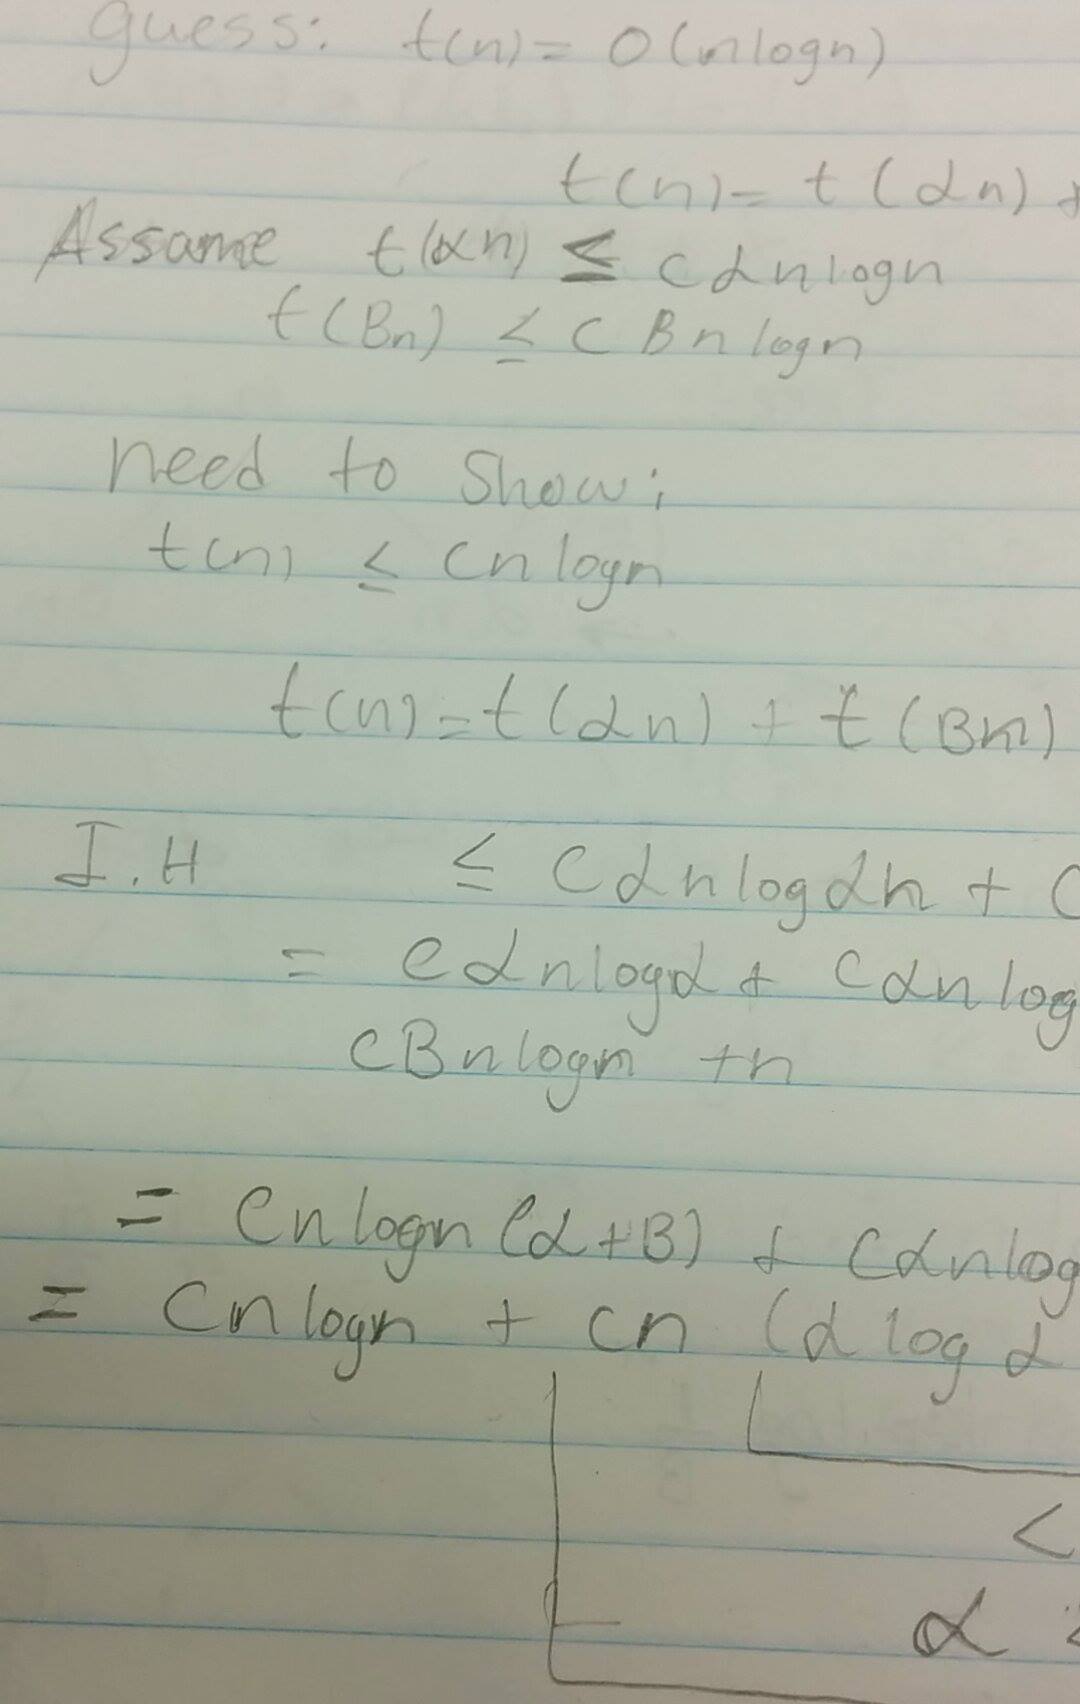 guess: t(n) = O(nlogn)
t(n) = t(αn) +
Assame t(αn) ≤ cαnlogn
t(Bn) ≤ C B n logn
need to Show;
t(n) ≤ Cn logn
t(n) = t(αn) + t(Bn)
I.H ≤ Cαn log αn + C
= cαnlogα + Cαn log
CBn logn +n
= Cn logn (α+B) + Cαn log
= Cn logn + cn (α log α
<
α